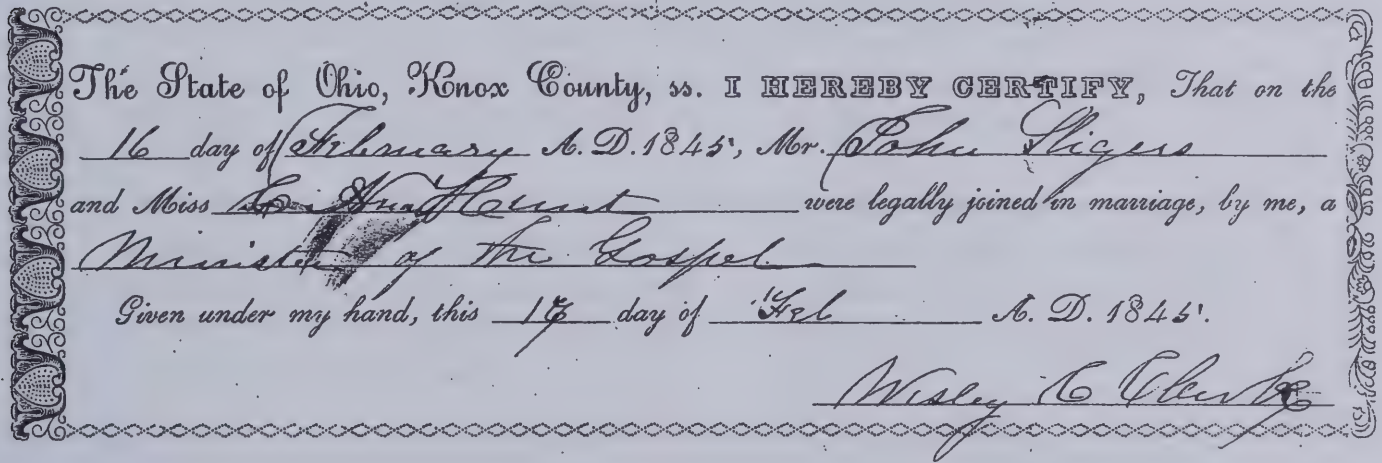 The State of Ohio, Knox County, ss. I HEREBY CERTIFY, That on the
16 day of February A. D. 1845, Mr. John Sligers
and Miss Hunt were legally joined in marriage, by me, a
Minister of the Gospel
Given under my hand, this 17 day of Feb A. D. 1845.
Wesley C Clarke